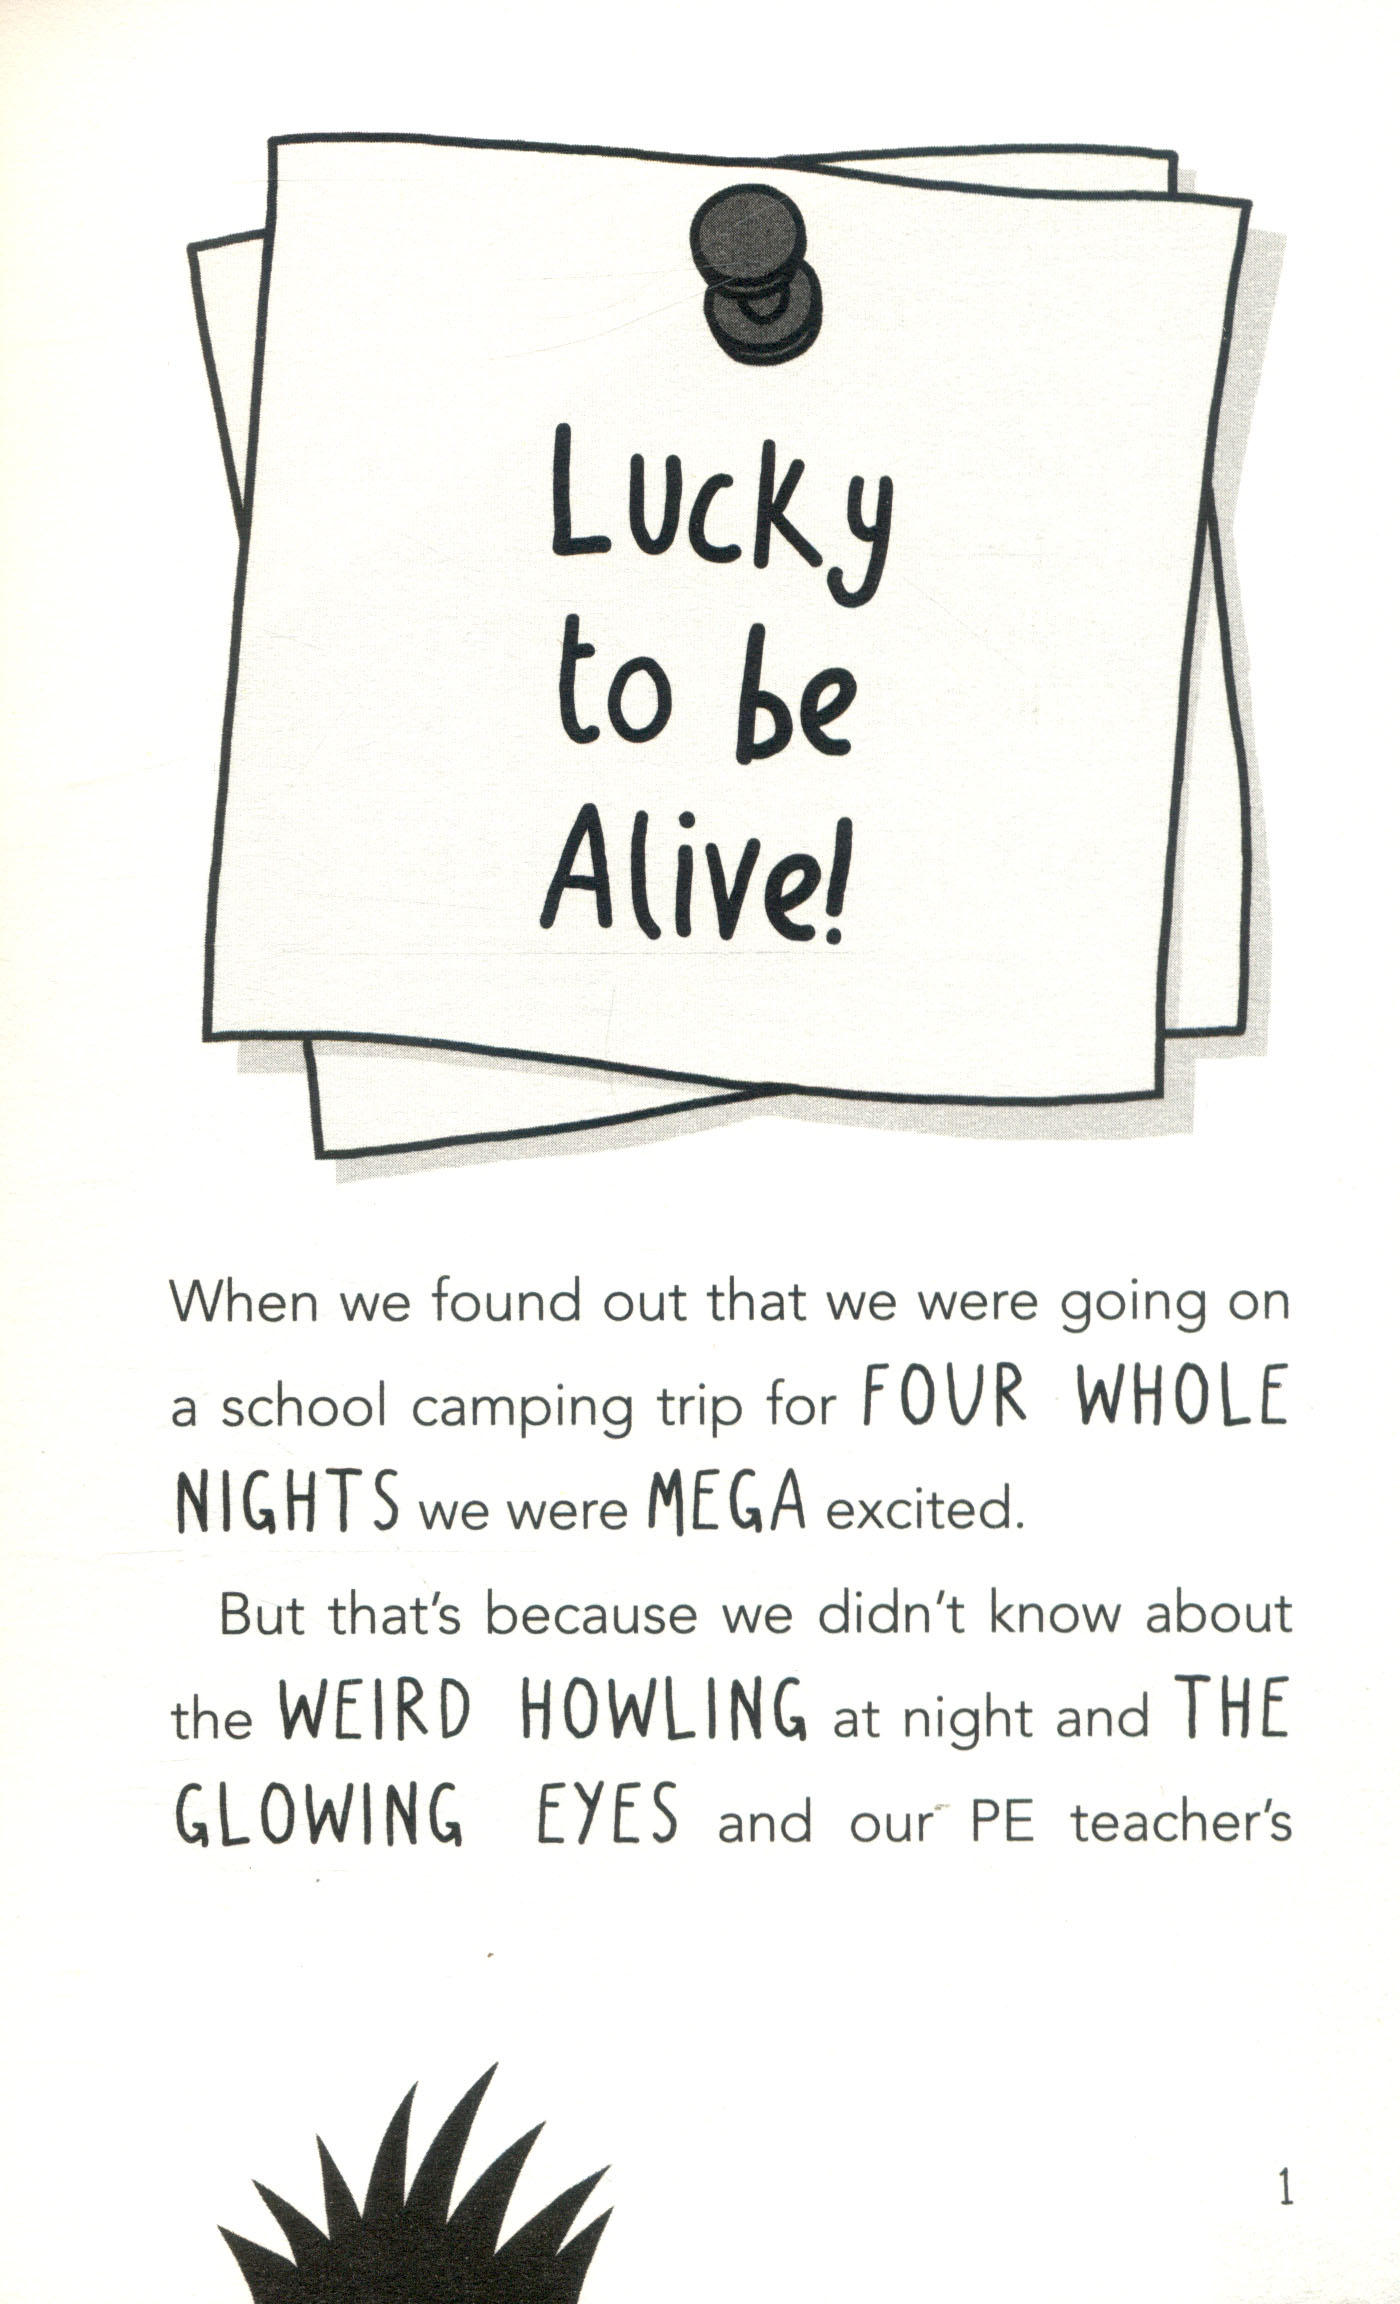 Lucky
to be
Alive!
When we found out that we were going on
a school camping trip for FOUR WHOLE
NIGHTS we were MEGA excited.
But that's because we didn't know about
the WEIRD HOWLING at night and THE
GLOWING EYES and our PE teacher's
1